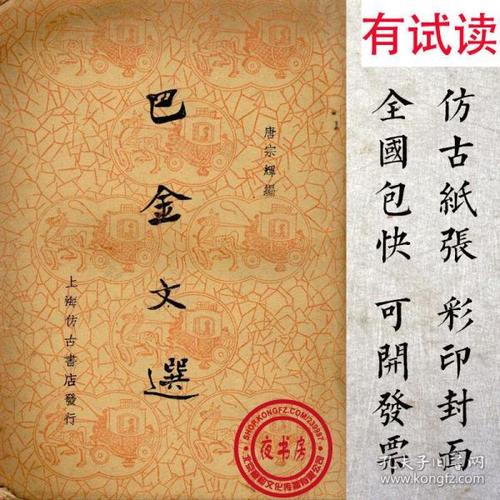 有试读
仿古紙張 彩印封面
全國包快 可開發票
唐宗輝編
巴金文選
上海仿古書店發行
SHOP.KONGFZ.COM/23/0987
夜书房
孔夫子旧书网